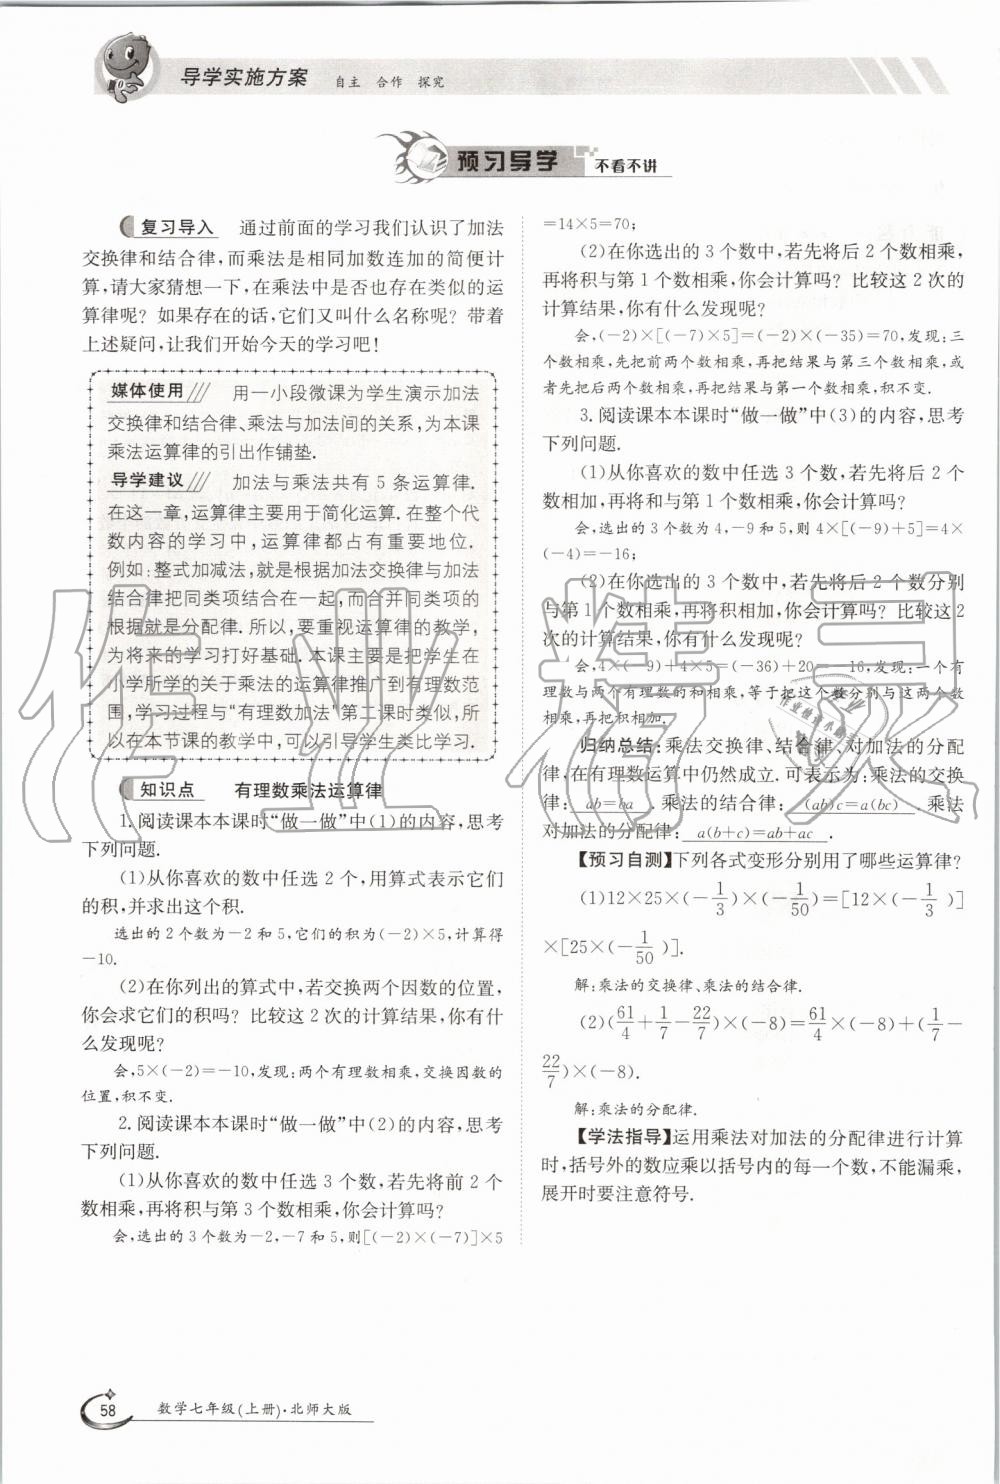 导学实施方案 自主 合作 探究
预习导学 不看不讲
复习导入 通过前面的学习我们认识了加法
交换律和结合律,而乘法是相同加数连加的简便计
算,请大家猜想一下,在乘法中是否也存在类似的运
算律呢?如果存在的话,它们又叫什么名称呢?带着
上述疑问,让我们开始今天的学习吧!
媒体使用 用一小段微课为学生演示加法
交换律和结合律、乘法与加法间的关系,为本课
乘法运算律的引出作铺垫.
导学建议 加法与乘法共有 5 条运算律.
在这一章,运算律主要用于简化运算.在整个代
数内容的学习中,运算律都占有重要地位.
例如:整式加减法,就是根据加法交换律与加法
结合律把同类项结合在一起,而合并同类项的
根据就是分配律.所以,要重视运算律的教学,
为将来的学习打好基础.本课主要是把学生在
小学所学的关于乘法的运算律推广到有理数范
围,学习过程与“有理数加法”第二课时类似,所
以在本节课的教学中,可以引导学生类比学习.
知识点 有理数乘法运算律
1.阅读课本本课时“做一做”中(1)的内容,思考
下列问题.
(1)从你喜欢的数中任选 2 个,用算式表示它们
的积,并求出这个积.
选出的 2 个数为-2 和 5,它们的积为(-2)×5,计算得
-10.
(2)在你列出的算式中,若交换两个因数的位置,
你会求它们的积吗?比较这 2 次的计算结果,你有什
么发现呢?
会,5×(-2)=-10,发现:两个有理数相乘,交换因数的
位置,积不变.
2.阅读课本本课时“做一做”中(2)的内容,思考
下列问题.
(1)从你喜欢的数中任选 3 个数,若先将前 2 个
数相乘,再将积与第 3 个数相乘,你会计算吗?
会,选出的 3 个数为-2,-7 和 5,则[(-2)×(-7)]×5
=14×5=70;
(2)在你选出的 3 个数中,若先将后 2 个数相乘,
再将积与第 1 个数相乘,你会计算吗?比较这 2 次的
计算结果,你有什么发现呢?
会,(-2)×[(-7)×5]=(-2)×(-35)=70,发现:三
个数相乘,先把前两个数相乘,再把结果与第三个数相乘,或
者先把后两个数相乘,再把结果与第一个数相乘,积不变.
3.阅读课本本课时“做一做”中(3)的内容,思考
下列问题.
(1)从你喜欢的数中任选 3 个数,若先将后 2 个
数相加,再将和与第 1 个数相乘,你会计算吗?
会,选出的 3 个数为 4,-9 和 5,则 4×[(-9)+5]=4×
(-4)=-16;
(2)在你选出的 3 个数中,若先将后 2 个数分别
与第 1 个数相乘,再将积相加,你会计算吗?比较这 2
次的计算结果,你有什么发现呢?
会,4×(-9)+4×5=(-36)+20=-16,发现:一个有
理数与两个有理数的和相乘,等于把这个数分别与这两个数
相乘,再把积相加.
归纳总结:乘法交换律、结合律、对加法的分配
律,在有理数运算中仍然成立.可表示为:乘法的交换
律: ab=ba .乘法的结合律: (ab)c=a(bc) .乘法
对加法的分配律: a(b+c)=ab+ac .
【预习自测】下列各式变形分别用了哪些运算律?
(1)12×25×(-1/3)×(-1/50)=[12×(-1/3)]
×[25×(-1/50)].
解:乘法的交换律、乘法的结合律.
(2)(61/4+1/7-22/7)×(-8)=61/4×(-8)+(1/7-
22/7)×(-8).
解:乘法的分配律.
【学法指导】运用乘法对加法的分配律进行计算
时,括号外的数应乘以括号内的每一个数,不能漏乘,
展开时要注意符号.
作业精灵
58 数学七年级(上册)·北师大版